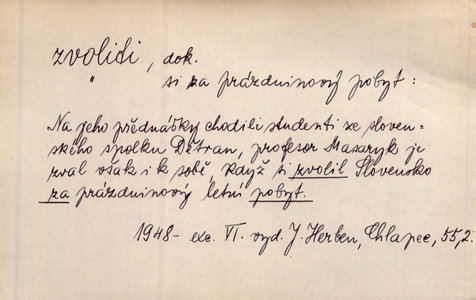 zvoliti, dok.
" si za prázdninový pobyt:
Na jeho přednášky chodili studenti ze sloven-
ského spolku Detvan, profesor Masaryk je
zval však i k sobě, když si zvolil Slovensko
za prázdninový letní pobyt.
1948 - exc. VI. vyd. J. Herben, Chlapec, 55,2.